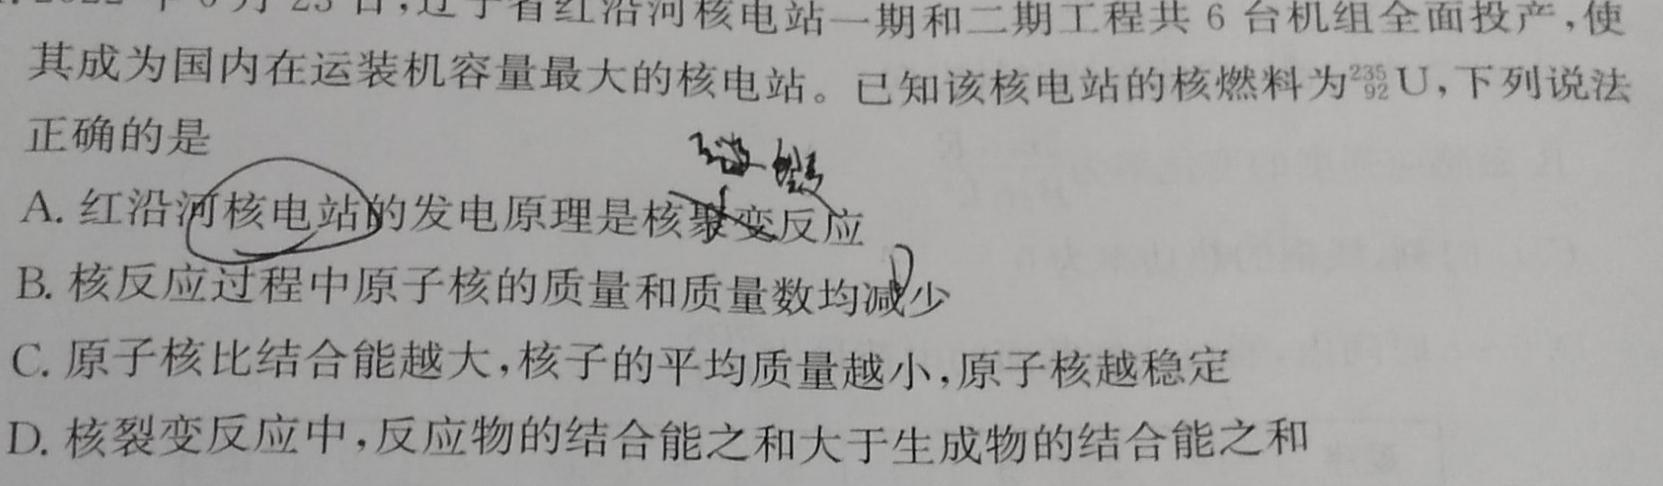 2022年6月23日,辽宁省红沿河核电站一期和二期工程共6台机组全面投产,使
其成为国内在运装机容量最大的核电站。已知该核电站的核燃料为²³⁵₉₂U,下列说法
正确的是
A. 红沿河核电站的发电原理是核聚变反应
B. 核反应过程中原子核的质量和质量数均减少
C. 原子核比结合能越大,核子的平均质量越小,原子核越稳定
D. 核裂变反应中,反应物的结合能之和大于生成物的结合能之和